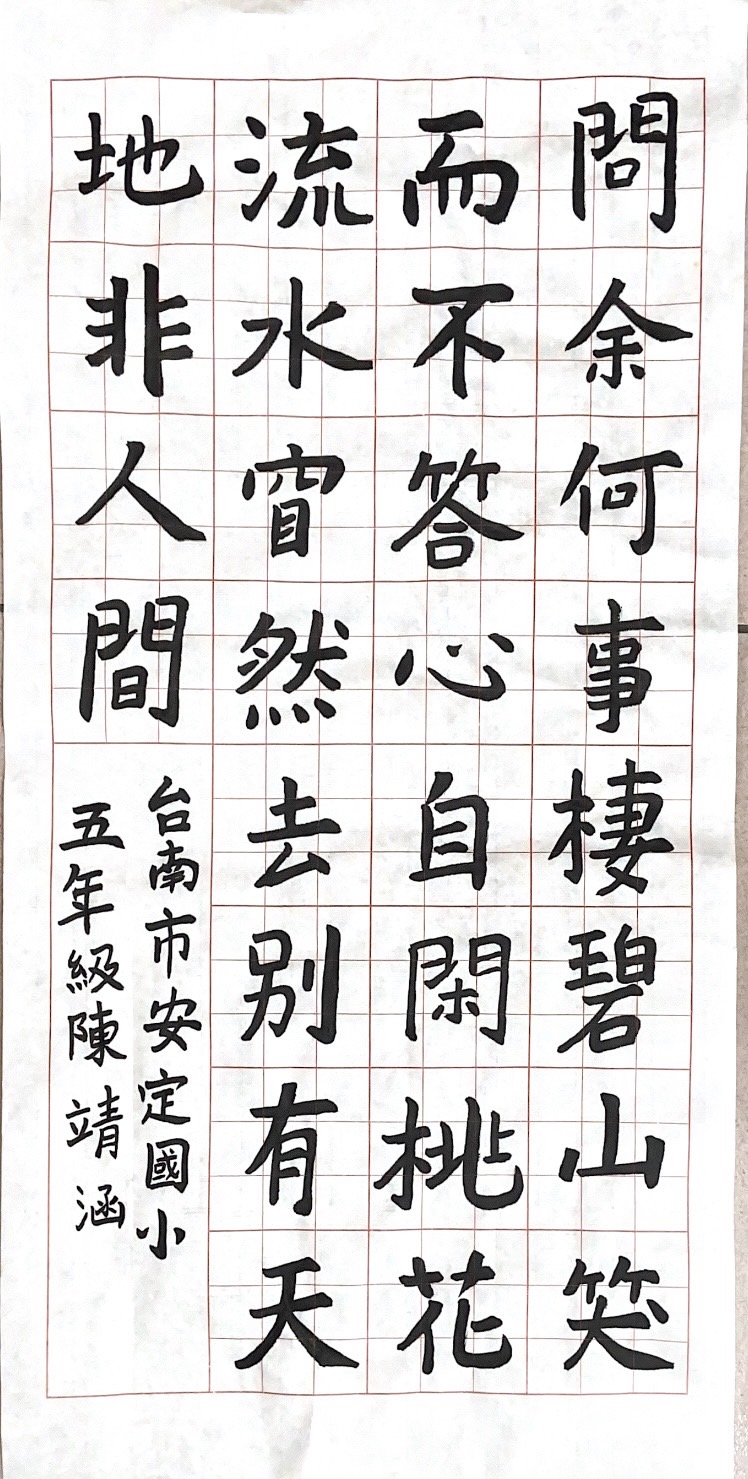 問余何事棲碧山笑
而不答心自閑桃花
流水窅然去別有天
地非人間
台南市安定國小
五年級陳靖涵